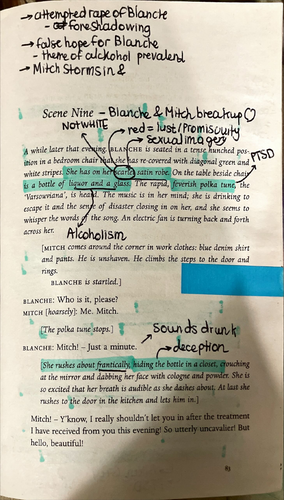 → attempted rape of Blanche
- foreshadowing
→ false hope for Blanche
- theme of alcohol prevalent
→ Mitch storms in &
Scene Nine - Blanche & Mitch breakup
NOT WHITE
→ red = lust/Promiscuity
→ sexual imagery
A while later that evening. BLANCHE is seated in a tense hunched pos-
ition in a bedroom chair that she has re-covered with diagonal green and
white stripes. She has on her scarlet satin robe. On the table beside chair
is a bottle of liquor and a glass. The rapid, feverish polka tune, the
'Varsouviana', is heard. The music is in her mind; she is drinking to
escape it and the sense of disaster closing in on her, and she seems to
whisper the words of the song. An electric fan is turning back and forth
across her.
PTSD
Alcoholism
[MITCH comes around the corner in work clothes: blue denim shirt
and pants. He is unshaven. He climbs the steps to the door and
rings.
BLANCHE is startled.]
BLANCHE: Who is it, please?
MITCH [hoarsely]: Me. Mitch.
[The polka tune stops.]
BLANCHE: Mitch! – Just a minute.
→ sounds drunk
→ deception
[She rushes about frantically, hiding the bottle in a closet, crouching
at the mirror and dabbing her face with cologne and powder. She is
so excited that her breath is audible as she dashes about. At last she
rushes to the door in the kitchen and lets him in.]
Mitch! – Y'know, I really shouldn't let you in after the treatment
I have received from you this evening! So utterly uncavalier! But
hello, beautiful!